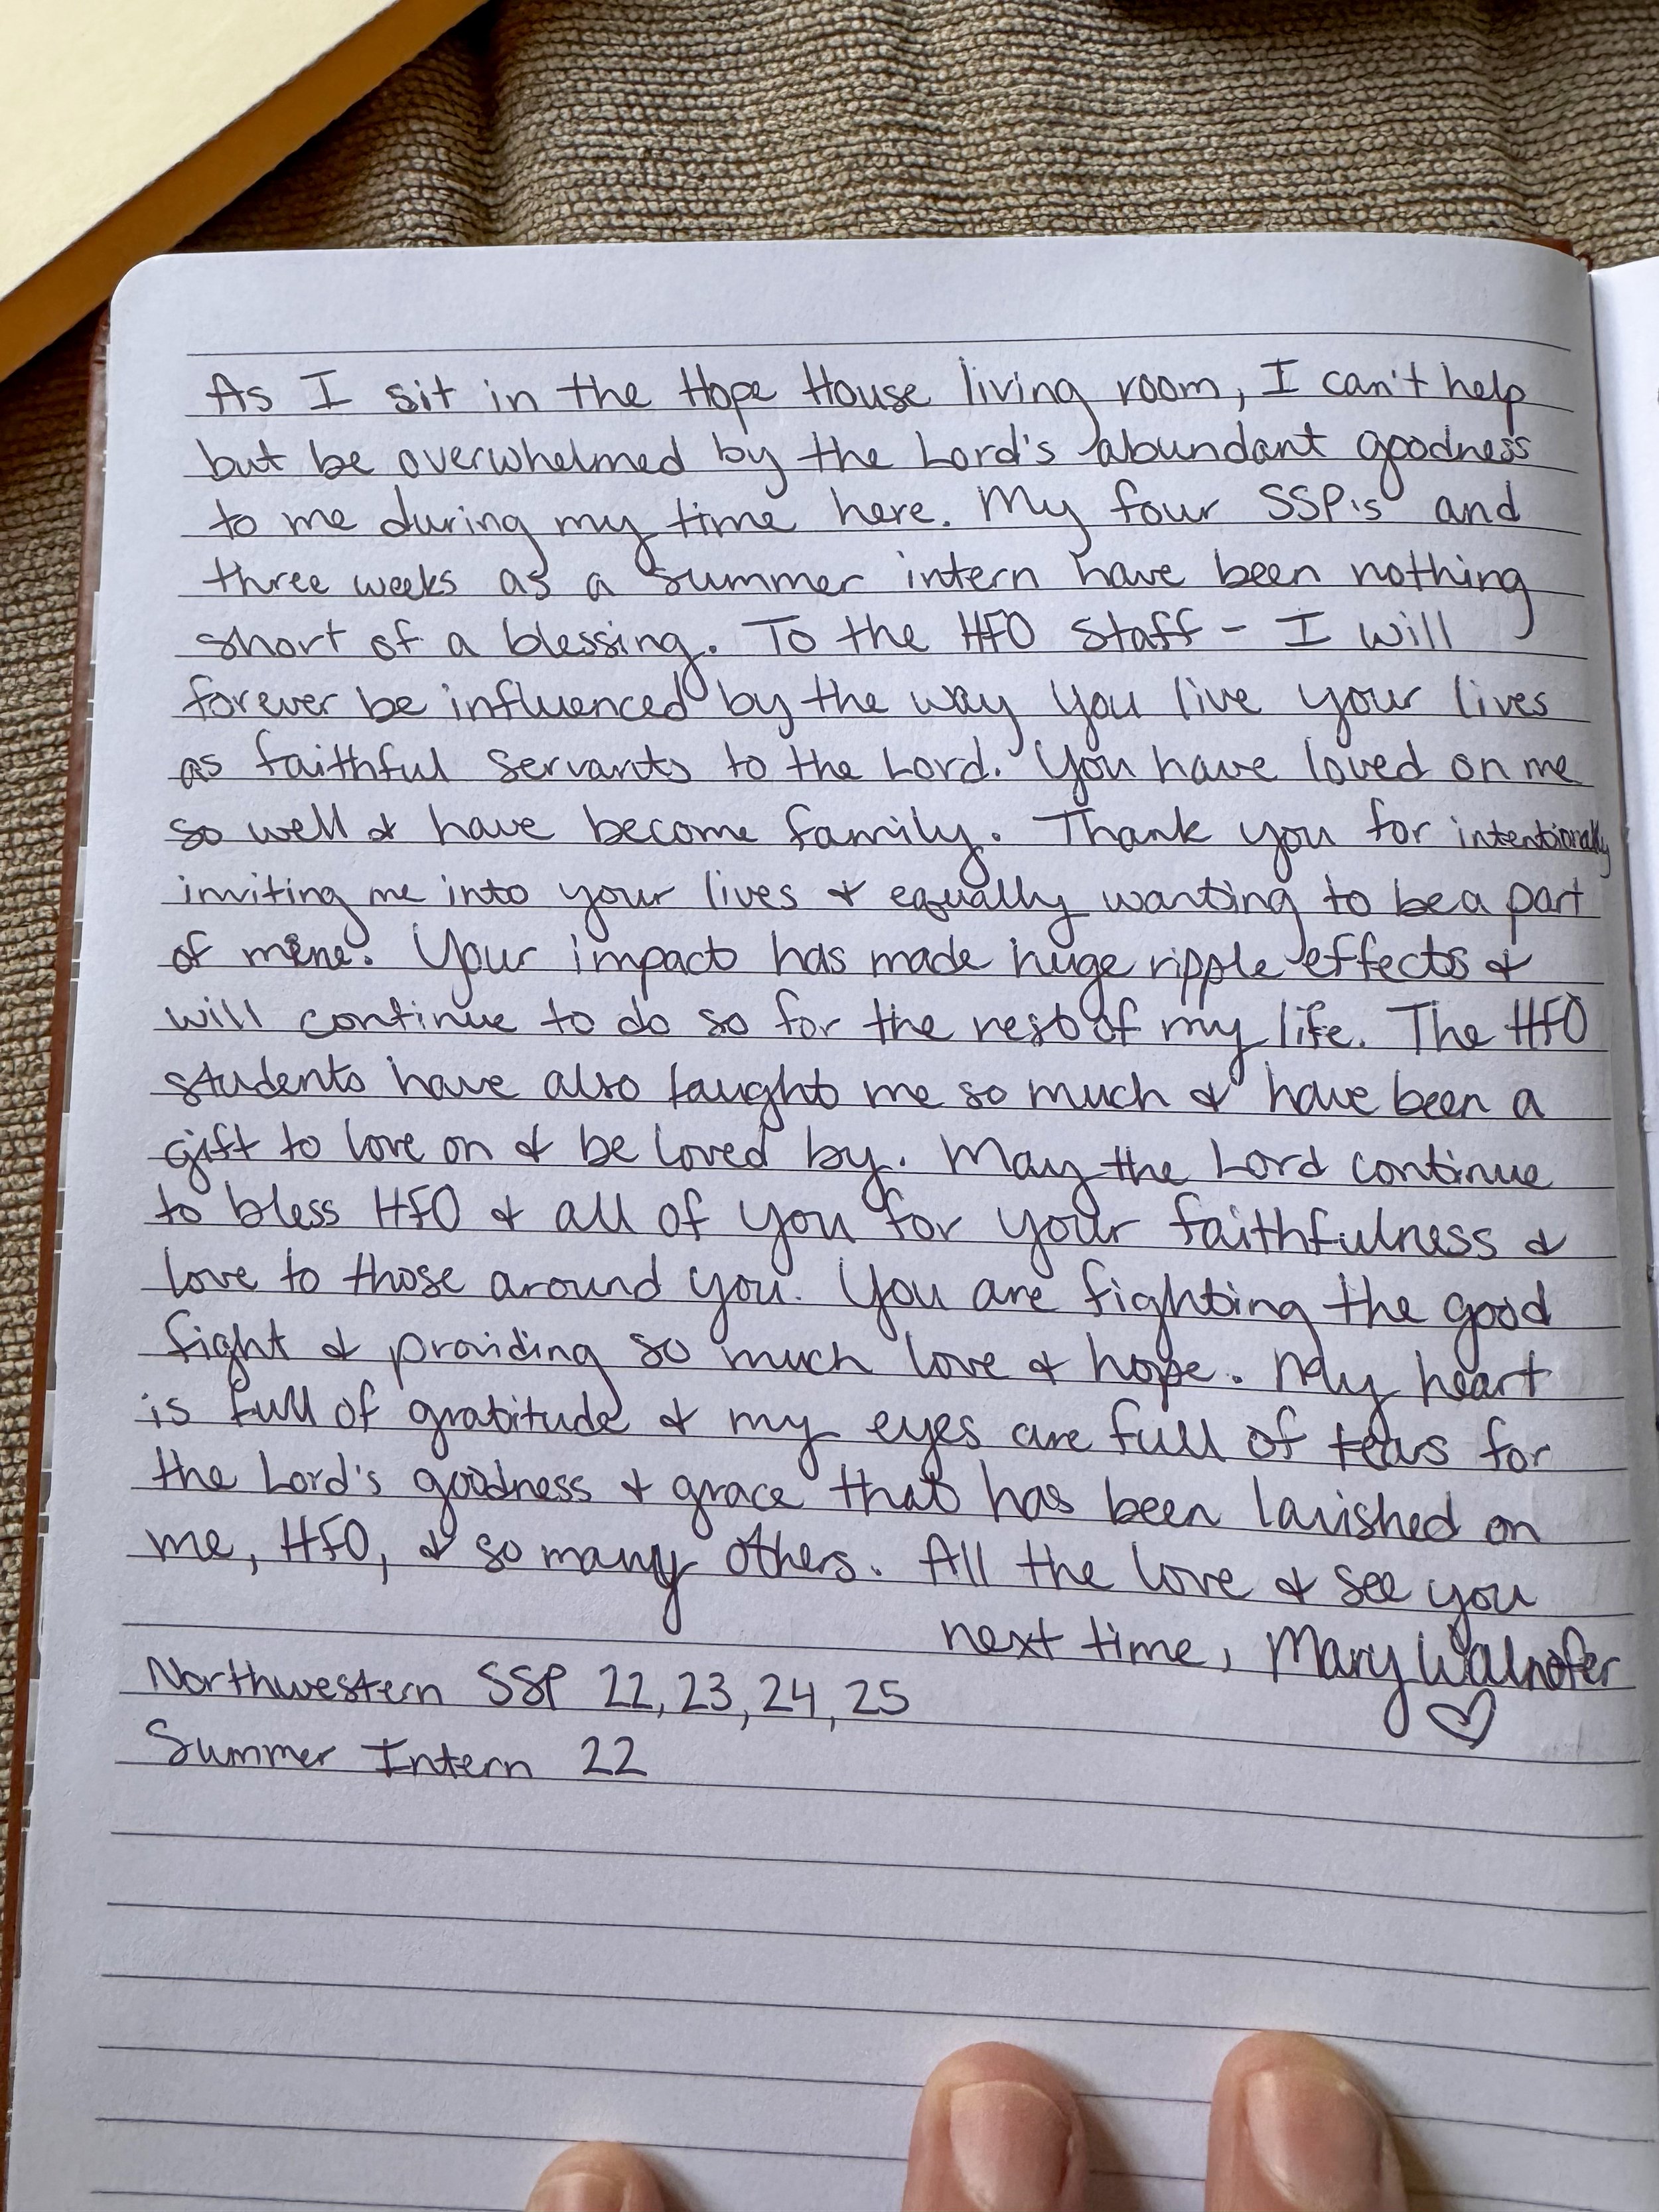 As I sit in the Hope House living room, I can't help
but be overwhelmed by the Lord's abundant goodness
to me during my time here. My four SSP's and
three weeks as a summer intern have been nothing
short of a blessing. To the HFO Staff - I will
forever be influenced by the way you live your lives
as faithful servants to the Lord. You have loved on me
so well & have become family. Thank you for intentionally
inviting me into your lives & equally wanting to be a part
of mine. Your impact has made huge ripple effects &
will continue to do so for the rest of my life. The HFO
students have also taught me so much & have been a
gift to love on & be loved by. May the Lord continue
to bless HFO & all of you for your faithfulness &
love to those around you. You are fighting the good
fight & providing so much love & hope. My heart
is full of gratitude & my eyes are full of tears for
the Lord's goodness & grace that has been lavished on
me, HFO, & so many others. All the love & see you
next time, Mary Walhofer
Northwestern SSP 22, 23, 24, 25
Summer Intern 22